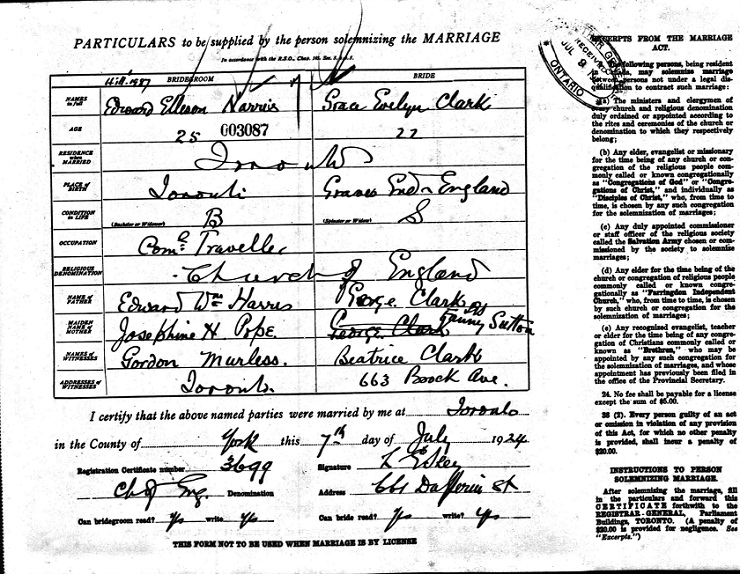 PARTICULARS to be supplied by the person solemnizing the MARRIAGE
In accordance with the R.S.O., Chap.
BRIDEGROOM BRIDE
NAMES in full Edward Elleson Harris Grace Evelyn Clark
AGE 25 003087 22
RESIDENCE when MARRIED Toronto
PLACE of BIRTH Toronto Graves End England
CONDITION in LIFE (Bachelor or Widower) B (Spinster or Widow) S
OCCUPATION Com'l Traveller
RELIGIOUS DENOMINATION Church of England
NAME of FATHER Edward Wm Harris George Clark
MAIDEN NAME of MOTHER Josephine H Pope. George Clark Fanny Sutton
NAMES of WITNESSES Gordon Murless. Beatrice Clark
ADDRESSES of WITNESSES Toronto. 663 Brock Ave.
I certify that the above named parties were married by me at Toronto
in the County of York this 7th day of July 1924
Registration Certificate number 3699 Signature
Ch of Eng. Denomination Address 661 Dufferin St
Can bridegroom read? Yes write? Yes Can bride read? Yes write? Yes
THIS FORM NOT TO BE USED WHEN MARRIAGE IS BY LICENSE
RECEIVED
JUL 8
ONTARIO
EXCERPTS FROM THE MARRIAGE
ACT.
following persons, being resident
in Canada, may solemnize marriage
between persons not under a legal dis-
qualification to contract such marriage:
(a) The ministers and clergymen of
any church and religious denomination
duly ordained or appointed according to
the rites and ceremonies of the church or
denomination to which they respectively
belong;
(b) Any elder, evangelist or missionary
for the time being of any church or con-
gregation of the religious people com-
monly called or known congregationally
as "Congregations of God" or "Congre-
gations of Christ," and individually as
"Disciples of Christ," who, from time to
time, is chosen by any such congregation
for the solemnization of marriages;
(c) Any duly appointed commissioner
or staff officer of the religious society
called the Salvation Army chosen or com-
missioned by the society to solemnize
marriages;
(d) Any elder for the time being of the
church or congregation of religious people
commonly called or known congre-
gationally as "Farringdon Independent
Church," who, from time to time, is chosen
by such church or congregation for the
solemnization of marriages;
(e) Any recognized evangelist, teacher
or elder for the time being of any congre-
gation of Christians commonly called or
known as "Brethren," who may be
appointed by any such congregation for
the solemnization of marriages, and whose
appointment has previously been filed in
the office of the Provincial Secretary.
24. No fee shall be payable for a license
except the sum of $5.00.
36 (2). Every person guilty of an act
or omission in violation of any provision
of this Act, for which no other penalty
is provided, shall incur a penalty of
$20.00.
INSTRUCTIONS TO PERSON
SOLEMNIZING MARRIAGE.
After solemnizing the marriage, fill
in the particulars and forward this
CERTIFICATE forthwith to the
REGISTRAR-GENERAL, Parliament
Buildings, TORONTO. (A penalty of
$20.00 is provided for negligence. See
"Excerpts.")